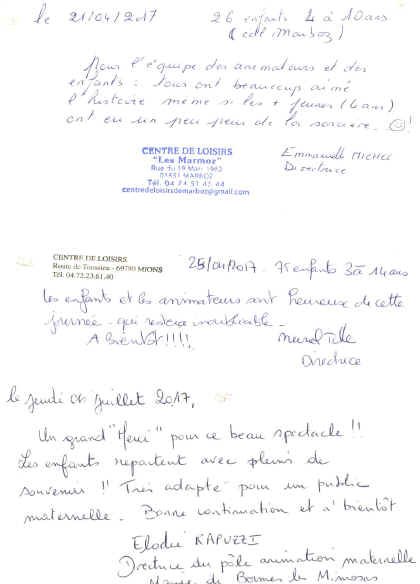 le 21/04/2017 26 enfants 4 à 10 ans
(cdl Marboz)
Pour l'équipe des animateurs et des
enfants : tous ont beaucoup aimé
l'histoire même si les + jeunes (4 ans)
ont eu un peu peur de la sorcière. !
CENTRE DE LOISIRS
"Les Marmoz"
Rue du 19 Mars 1962
01851 MARBOZ
Tél. 04 74 51 42 44
centredeloisirsdemarboz@gmail.com
Emmanuelle MICHEL
Directrice
CENTRE DE LOISIRS
Route de Toussieu - 69780 MIONS
Tél. 04.72.23.61.40
25/04/2017 - 75 enfants 3 à 14 ans
Les enfants et les animateurs sont heureux de cette
journée qui restera inoubliable -
A bientôt !!!!
Directrice
le jeudi 06 juillet 2017,
Un grand "Merci" pour ce beau spectacle !!
Les enfants repartent avec pleins de
souvenirs !! Très adapté pour un public
maternelle. Bonne continuation et à bientôt
Elodie KAPUZZI
Directrice du pôle animation maternelle
Mairie de Bormes les Mimosas